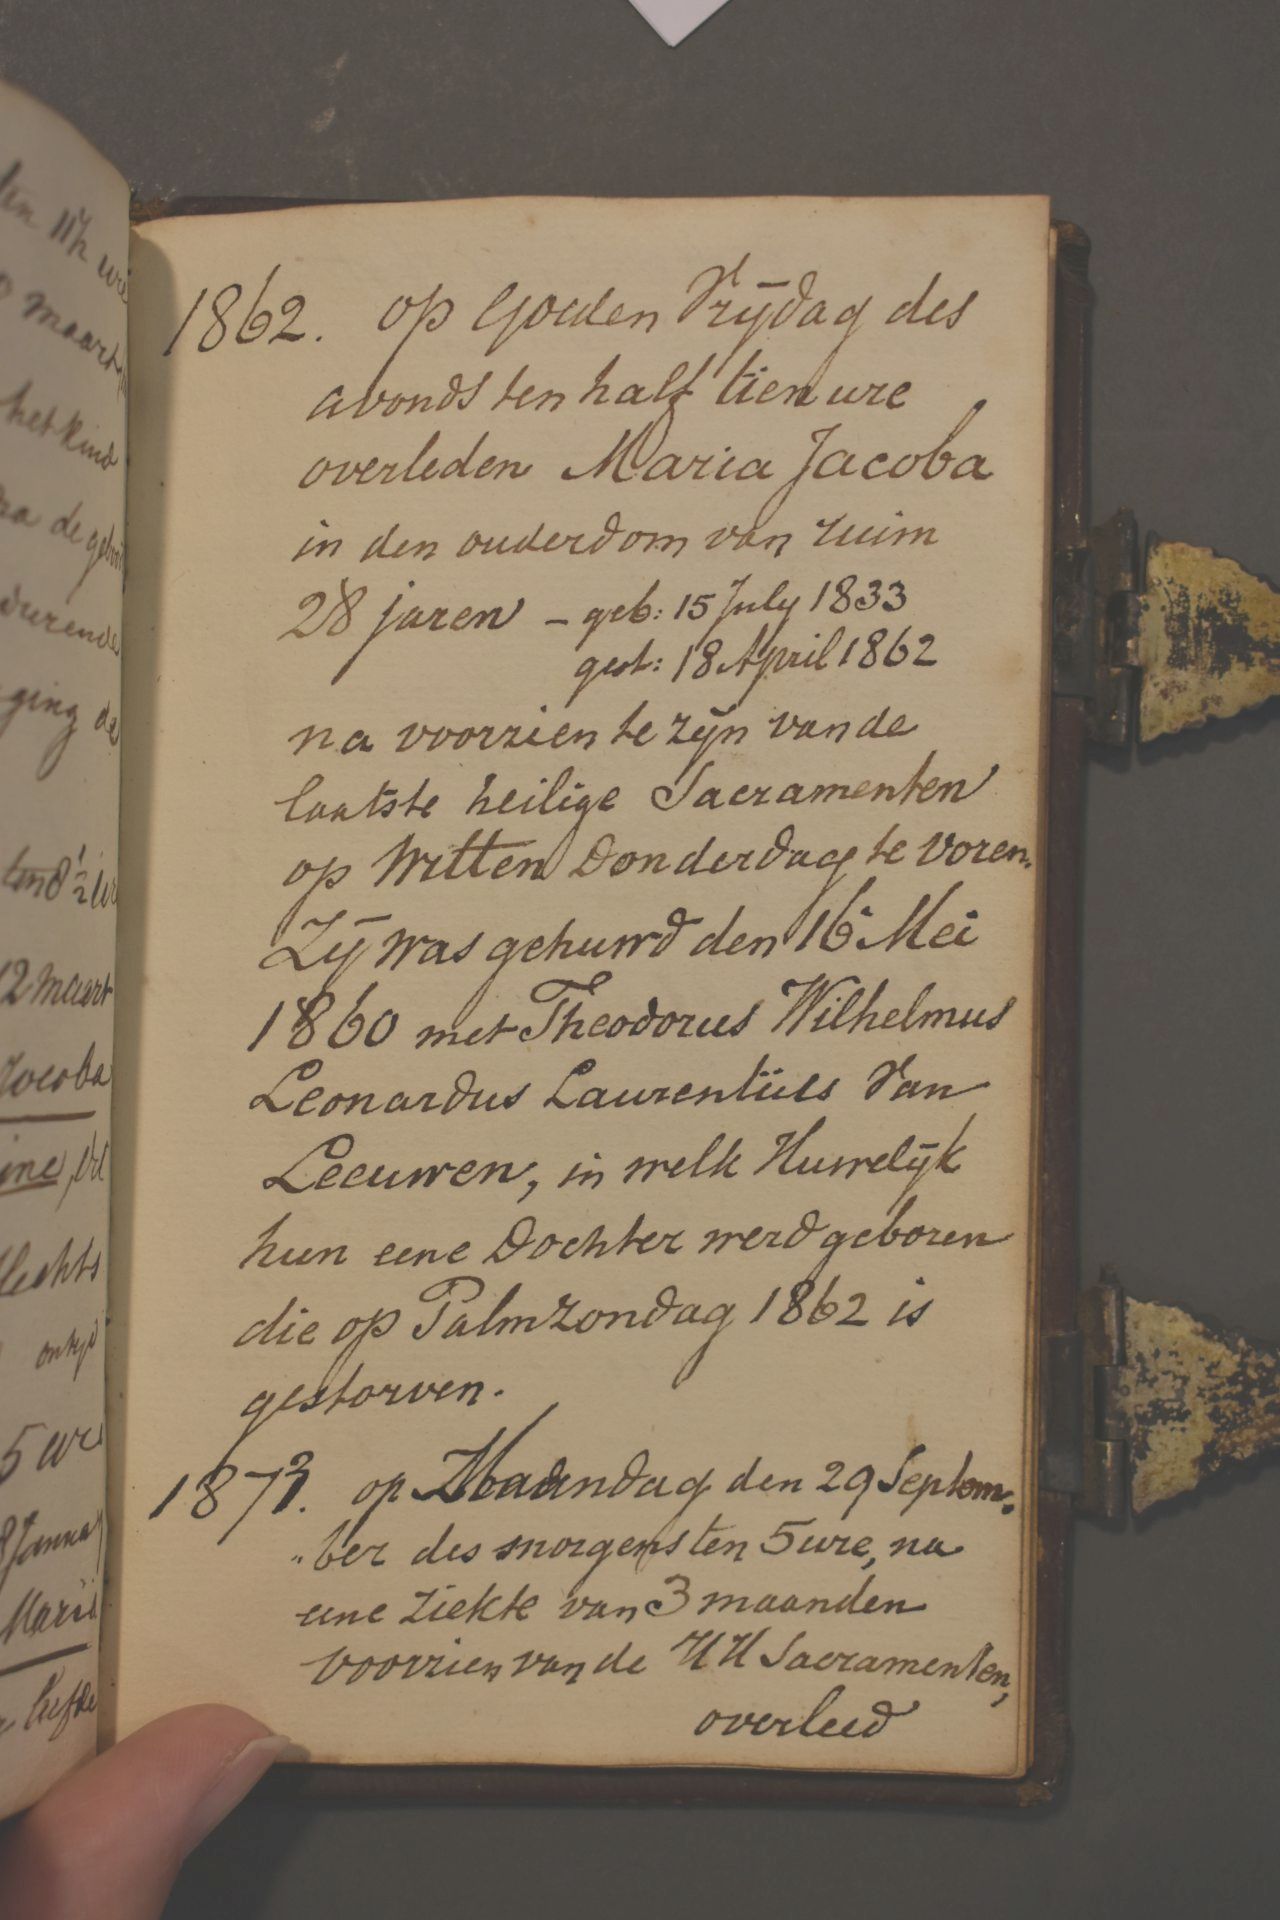 den 11½
maart
het kind
de
durende
ging de
ten 8½
12 maart
Jacoba
ine,
slechts
5 ure
Maria
liefde
1862. op Goeden Vrÿdag des
avonds ten half tien ure
overleden Maria Jacoba
in den ouderdom van ruim
28 jaren – geb: 15 July 1833
gest: 18 April 1862
na voorzien te zÿn van de
laatste heilige Sacramenten
op Witten Donderdag te voren.
Zÿ was gehuwd den 16 Mei
1860 met Theodorus Wilhelmus
Leonardus Laurentius Van
Leeuwen, in welk Huwelÿk
hun eene Dochter werd geboren
die op Palmzondag 1862 is
gestorven.
1873. op Maandag den 29 Septem„
„ber des morgens ten 5 ure, na
eene ziekte van 3 maanden
voorzien van de HH Sacramenten,
overleed